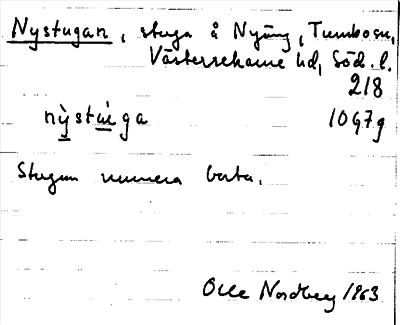 Nystugan, stuga å Nyäng, Tumbo sn,
Västerrekarne hd, Söd. l.
218
nỳstúga 10G7g
Stugan numera borta.
Olle Nordberg 1963